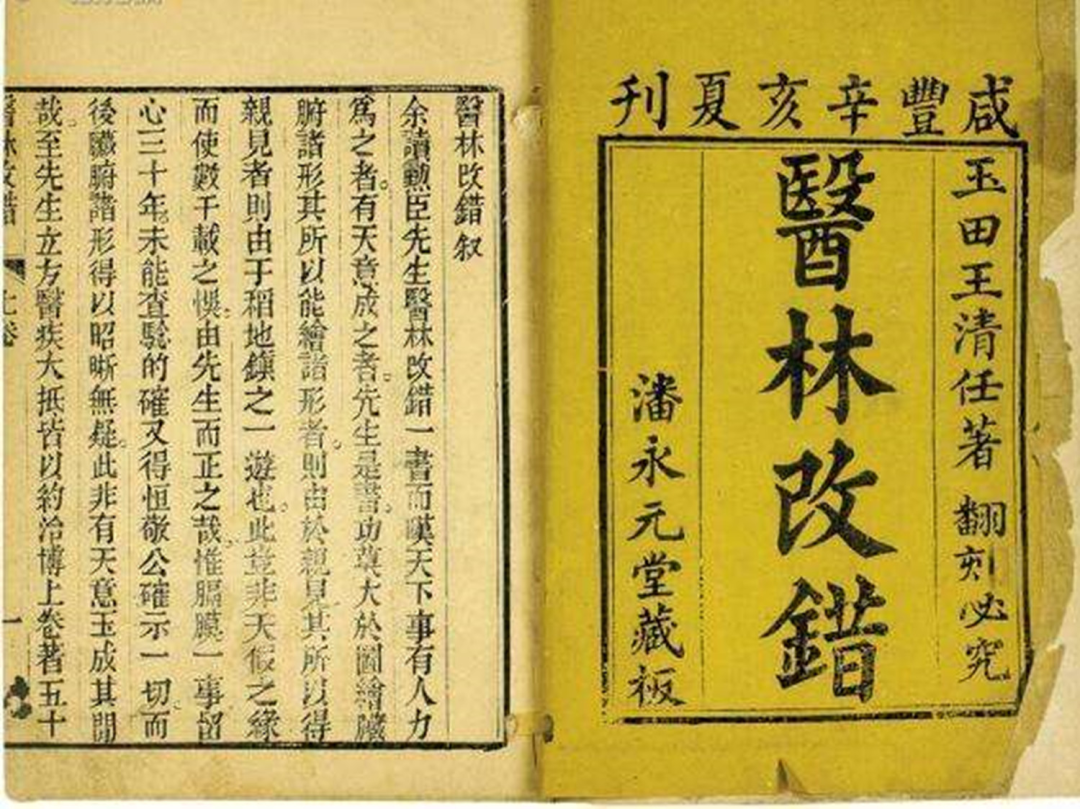 咸豐辛亥夏刊
玉田王清任著 翻刻必究
醫林改錯
潘永元堂藏板
醫林改錯叙
余讀勲臣先生醫林改錯一書而嘆天下事有人力
爲之者。有天意成之者。先生是書。功莫大於圖繪臟
腑諸形其所以能繪諸形者。則由於親見其所以得
親見者則由于稻地鎮之一遊也。此豈非天假之緣
而使數千載之悞。由先生而正之哉。惟膈膜一事留
心三十年。未能查騐的確又得恒敬公確示一切。而
後臟腑諸形得以昭晰無疑。此非有天意玉成其間
哉。至先生立方醫疾大抵皆以約治博上卷著五十
醫林改錯 上卷 一